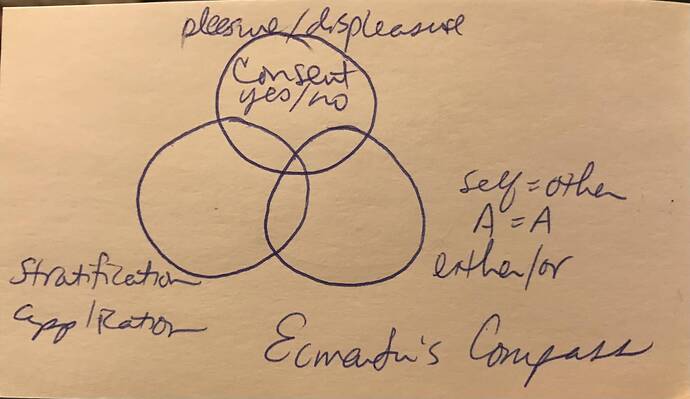 pleasure/displeasure
Consent
yes/no
self = other
A = A
either/or
Stratification
application
Ecmandu's Compass